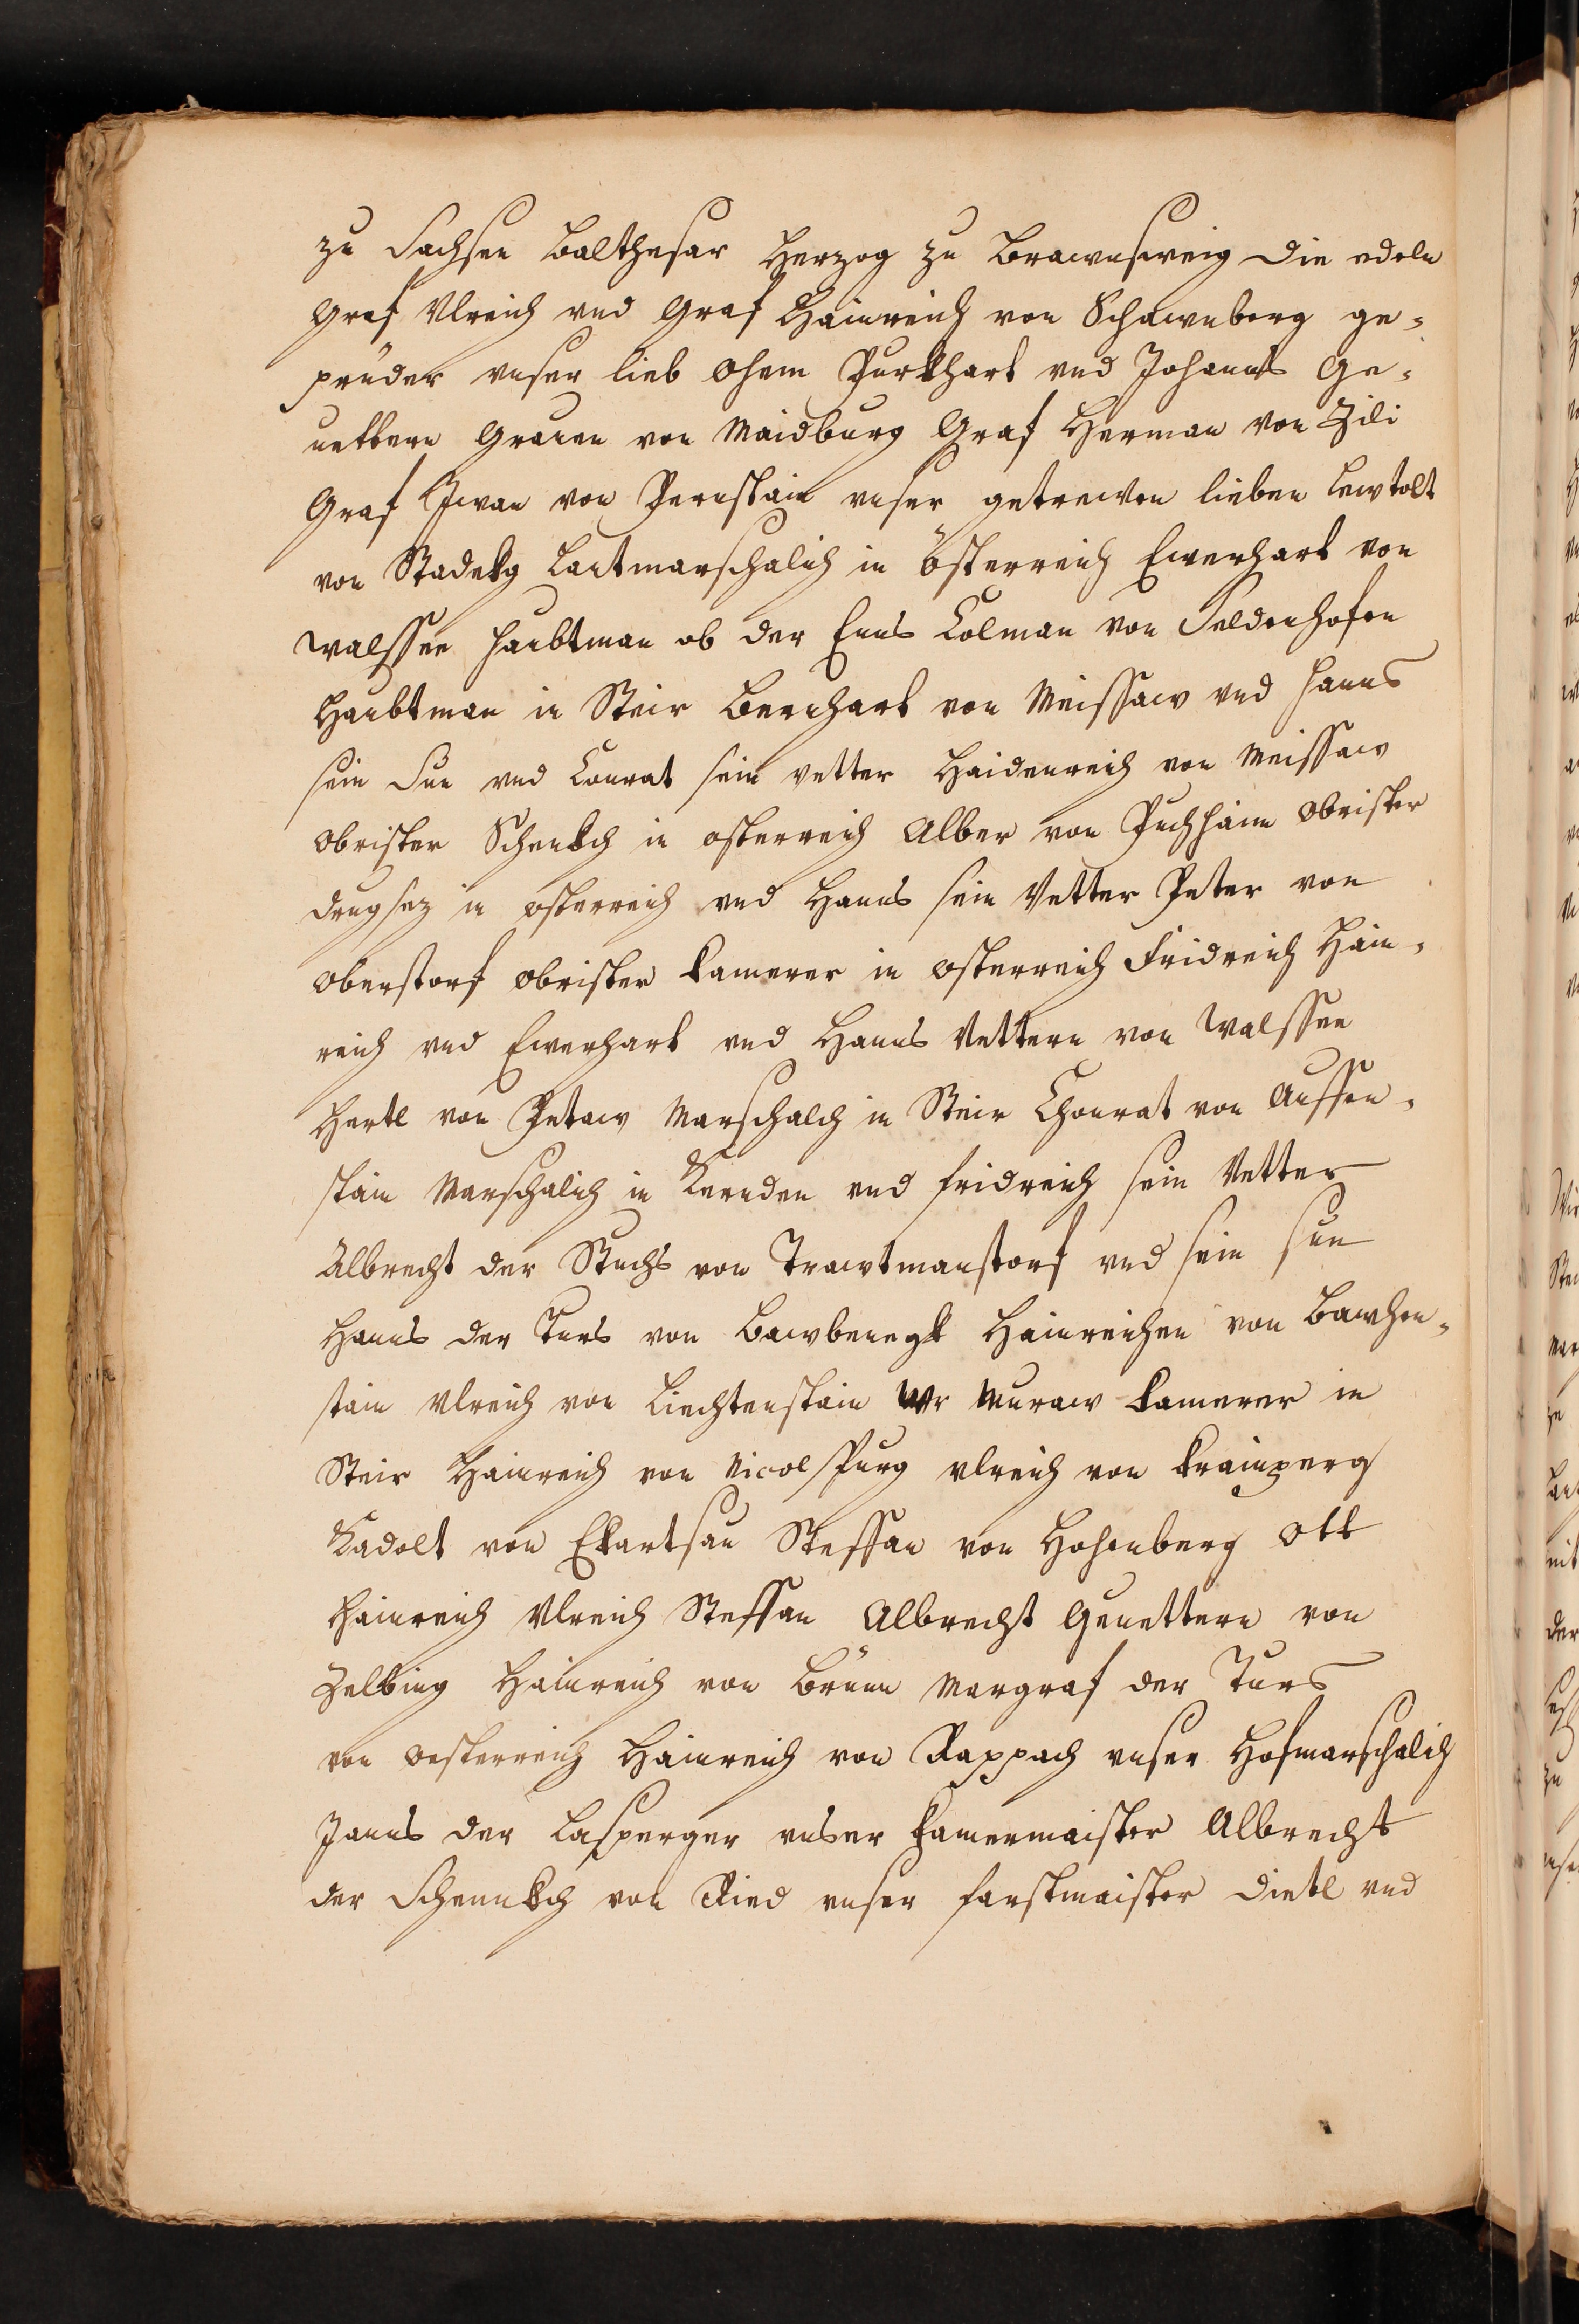 zu Sachsen Balthesar Herzog zu Brawnsweig die edeln
Graf Vlreich vnd Graf Hainreich von Schawnberg ge-
prüder vnser lieb Ohem Purkhart vnd Johanns Ge-
uettern Grauen von Maidburg Graf Herman von Zili
Graf Iwan von Pernstain vnser getrewen lieben Lewtolt
von Stadekg Lantmarschalich in Österreich Ewerhart von
Walssee Haubtman ob der Enns Colman von Seldenhofen
Haubtman in Steir Bernhart von Meissaw vnd Hanns
sein Sun vnd Conrat sein vetter Haidenreich von Meissaw
Obrister Schenkch in osterreich Alber von Puchhaim Obrister
Drugsez in osterreich vnd Hanns sein Vetter Peter von
Oberstorf Obrister Kamerer in osterreich Fridreich Hain-
reich vnd Ewerhart vnd Hanns Vettern von Walssee
Hertl von Petaw Marschalch in Steir Chonrat von Auffen-
stain Marschalich in Kernden vnd fridreich sein Vetter
Albrecht der Stuchs von Trawtmanstorf vnd sein sun
Hanns der Turs von Rawhenegk Hainreichen von Rawhen-
stain Vlreich von Liechtenstain von Muraw Kamerer in
Steir Hainreich von Nicolspurg vlreich von Krainperg
Kadolt von Ekartsau Steffan von Hohenberg Ott
Hainreich Vlreich Steffan Albrecht Geuettern von
Zelking Hainreich von Brünn Margraf der Turs
von Oesterreich Hainreich von Rappach vnser Hofmarschalich
Janns der Lasperger vnser Kamermaister Albrecht
der Schennkch von Ried vnser farstmaister Dietl vnd